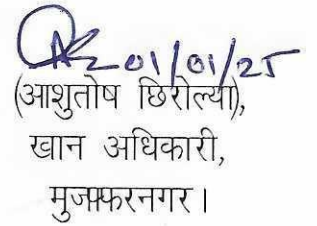 01/01/25
(आशुतोष छिरोल्या),
खान अधिकारी,
मुजफ्फरनगर।